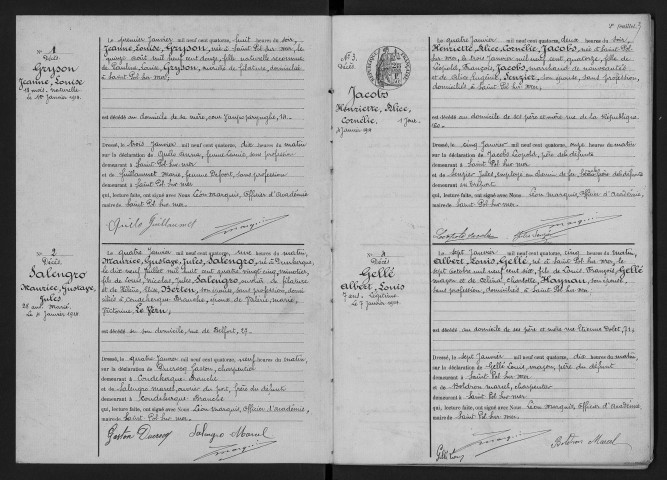 N° 1
Décès
Gryson
Jeanne, Louise
le 1er Janvier 1914.
Le premier Janvier mil neuf cent quatorze, huit heures du soir,
Jeanne, Louise, Gryson, née à Saint Pol sur mer, le
quinze août mil neuf cent douze, fille naturelle reconnue
de Pauline, Louise, Gryson, ouvrière de filature, domiciliée
à Saint Pol sur mer,
est décédée au domicile de sa mère, cour
Dressé, le trois Janvier mil neuf cent quatorze, dix heures du matin
sur la déclaration de sans profession
demeurant à Saint Pol sur mer
et de Guillaumet Marie, sans profession
demeurant à Saint Pol sur mer
qui, lecture faite, ont signé avec Nous Léon Marquis, Officier d'Académie
maire de Saint Pol sur mer.
N° 2
Décès
Salengro
Maurice, Gustave,
Jules
28 ans marié
le 4 Janvier 1914
Le quatre Janvier mil neuf cent quatorze, une heure du matin,
Maurice, Gustave, Jules, Salengro, né à Dunkerque,
le dix neuf Juillet mil huit cent quatre vingt cinq,
fils de Louis, Nicolas, Jules, Salengro, ouvrier de filature
et de son épouse, sans profession, domi-
ciliés à Coudekerque Branche, époux de Valérie, Marie,
Victorine, Le Fern;
est décédé en son domicile, rue de Belfort, 29.
Dressé, le quatre Janvier mil neuf cent quatorze, neuf heures du matin
sur la déclaration de Ducrocq Gaston, charpentier
demeurant à Coudekerque Branche
et de Salengro Marcel, ouvrier du port, frère du défunt
demeurant à Coudekerque Branche
qui, lecture faite, ont signé avec Nous Léon Marquis, Officier d'Académie,
maire de Saint Pol sur mer.
Gaston Ducrocq Salengro Marcel
N° 3.
Décès
Jacobs
Henriette, Alice,
Cornélie.
1 Jour.
4 Janvier 1914
Le quatre Janvier mil neuf cent quatorze, deux heures du soir,
Henriette, Alice, Cornélie, Jacobs, née à Saint Pol
sur mer, le trois Janvier mil neuf cent quatorze, fille de
Léopold, François, Jacobs, marchand de nouveautés
et de Alice, Eugénie, Senzier, son épouse, sans profession,
domiciliés à Saint Pol sur mer,
est décédée au domicile de ses père et mère rue de la République
Dressé, le cinq Janvier mil neuf cent quatorze, onze heures du matin
sur la déclaration de Jacobs Léopold, père de la défunte
demeurant à Saint Pol sur mer
et de Senzier Jules, employé au chemin de fer,
demeurant
qui, lecture faite, ont signé avec Nous Léon Marquis, Officier d'Académie,
maire de Saint Pol sur mer.
N° 4
Décès
Gellé
Albert, Louis
7 ans.
Le 7 Janvier 1914.
Le sept Janvier mil neuf cent quatorze, cinq heures du matin,
Albert, Louis, Gellé, né à Saint Pol sur mer, le
sept octobre mil neuf cent six, fils de Louis, François, Gellé
maçon et de Célina, Charlotte, Haynau, son épouse,
sans profession, domiciliés à Saint Pol sur mer,
est décédé au domicile de ses père et mère rue Etienne Dolet, 71;
Dressé, le sept Janvier mil neuf cent quatorze, dix heures du matin,
sur la déclaration de Gellé Louis, maçon, père du défunt
demeurant à Saint Pol sur mer
et de Boldron Marcel, charpentier
demeurant à Saint Pol sur mer
qui, lecture faite, ont signé avec Nous Léon Marquis, Officier d'Académie
maire de Saint Pol sur mer.
Boldron Marcel